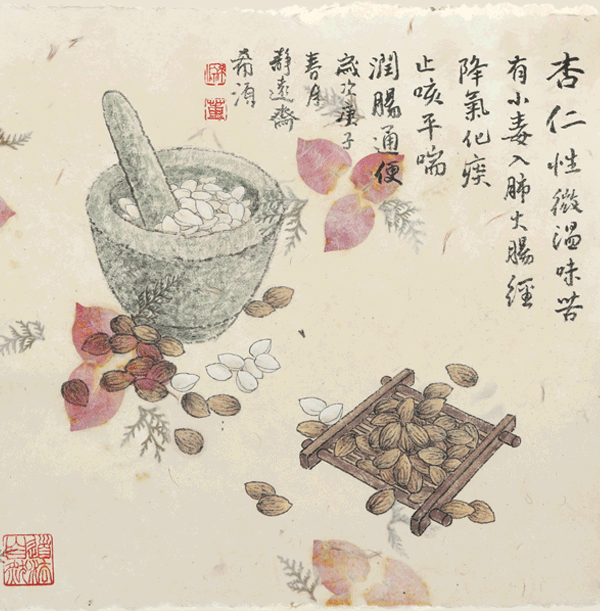 杏仁性微溫味苦
有小毒入肺大腸經
降氣化痰
止咳平喘
潤腸通便
歲次庚子
春月
靜遠齋
希
道法自然